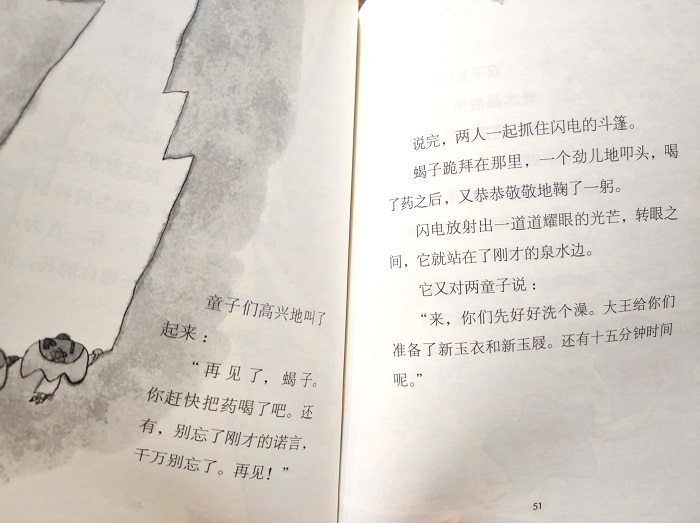 童子们高兴地叫了
起来：
“再见了，蝎子。
你赶快把药喝了吧。还
有，别忘了刚才的诺言，
千万别忘了。再见！”
说完，两人一起抓住闪电的斗篷。
蝎子跪拜在那里，一个劲儿地叩头，喝
了药之后，又恭恭敬敬地鞠了一躬。
闪电放射出一道道耀眼的光芒，转眼之
间，它就站在了刚才的泉水边。
它又对两童子说：
“来，你们先好好洗个澡。大王给你们
准备了新玉衣和新玉屐。还有十五分钟时间
呢。”
51